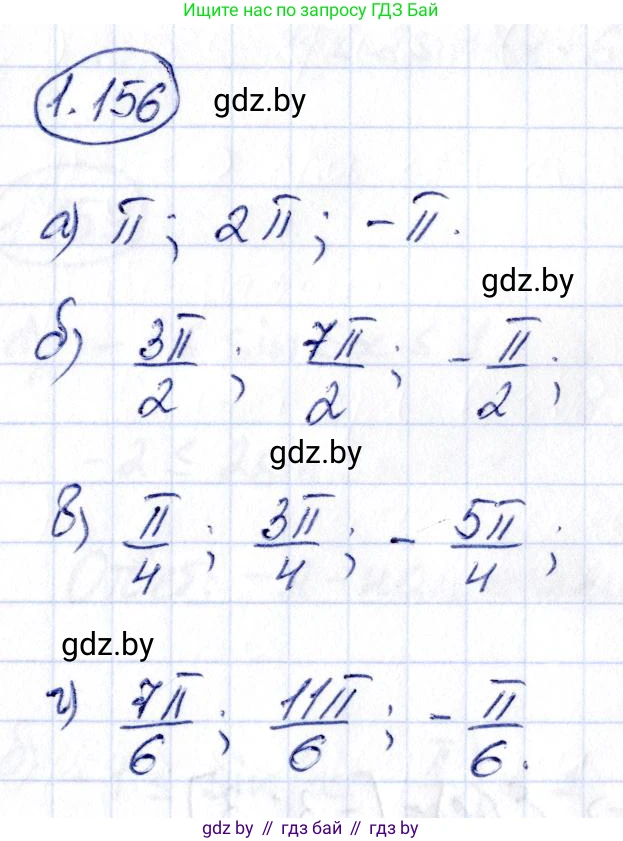 Ищите нас по запросу ГДЗ Бай
1.156 gdz.by
а) π; 2π; -π.
gdz.by
б) 3π/2; 7π/2; -π/2;
gdz.by
в) π/4; 3π/4; -5π/4;
gdz.by
г) 7π/6; 11π/6; -π/6.
gdz.by // гдз бай // гдз by